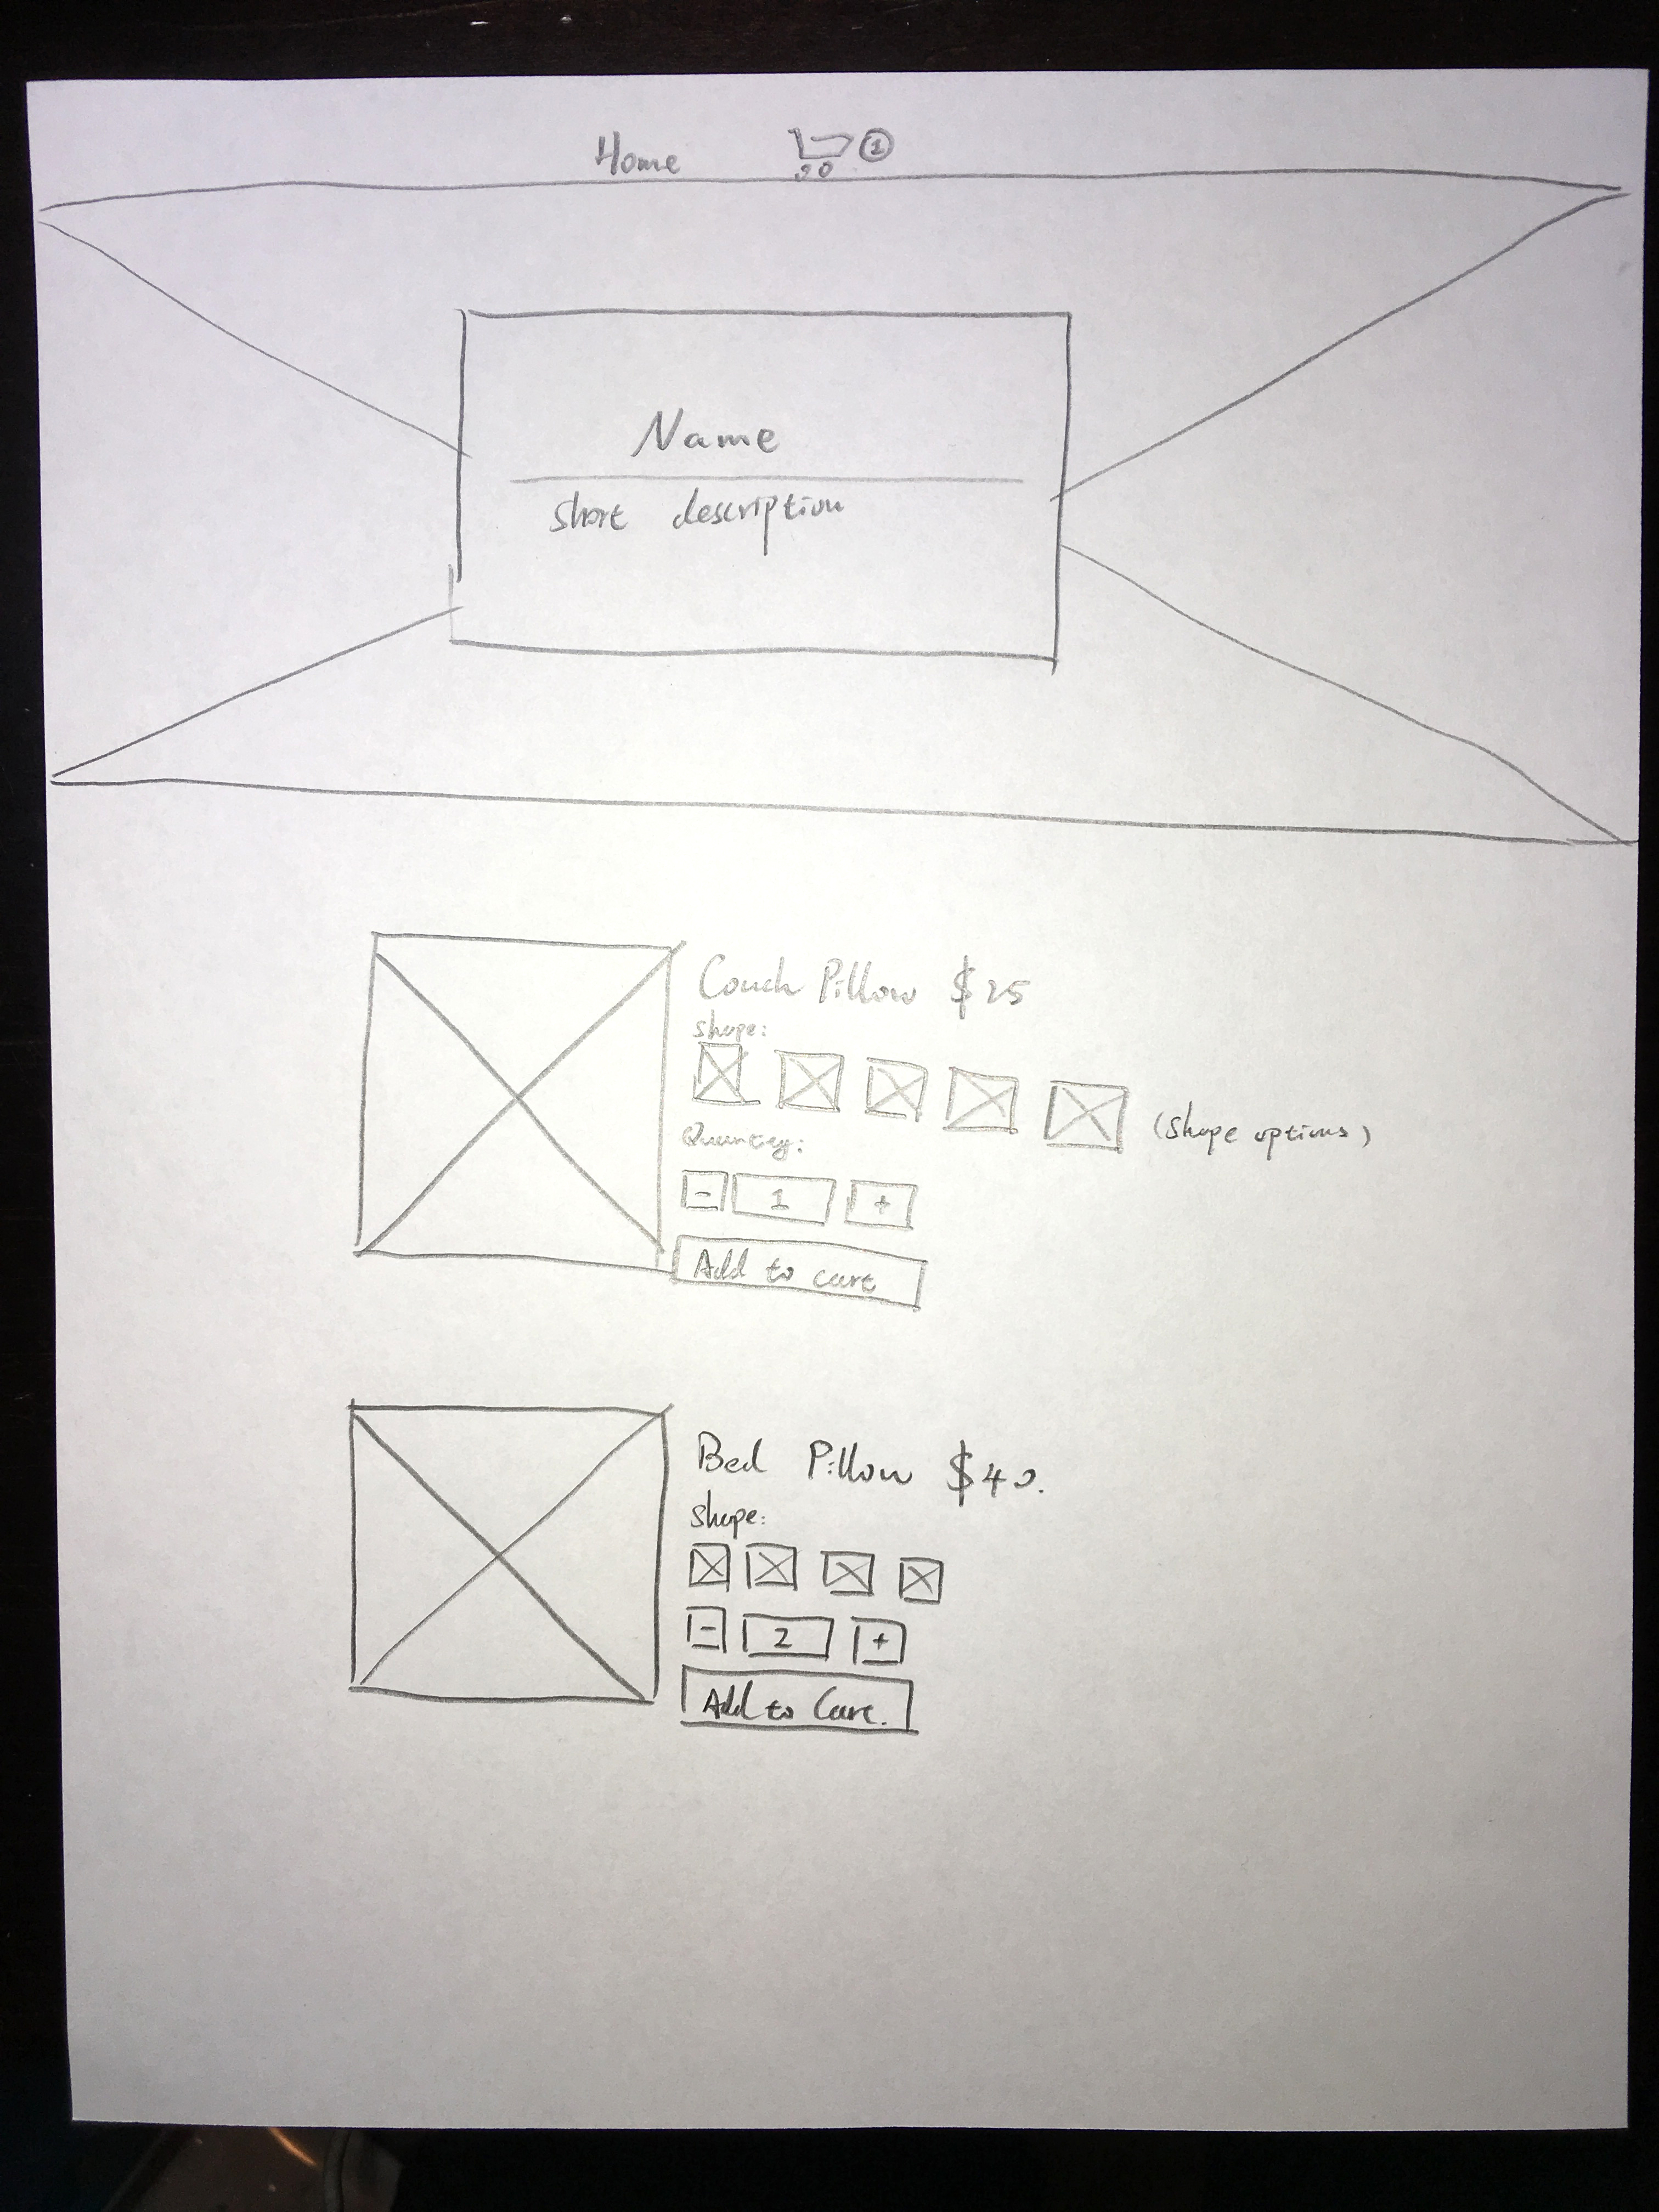 Home 1
Name
Short description
Couch Pillow $25
Shape:
(Shape options)
- 1 +
Add to cart
Bed Pillow $40.
Shape:
- 2 +
Add to Cart.